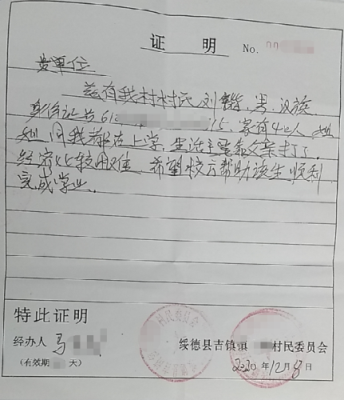 证 明 No.
贵单位
兹有我村村民刘 男、汉族
身份证号61 15. 家有4口人 姐
姐同我都在上学, 生活主要靠父亲打工
经济比较 希望校方帮助该生顺利
完成学业.
特此证明
经办人
(有效期 天)
绥德县吉镇镇 村民委员会
2020年12月8日
村民委员会
村民委员会